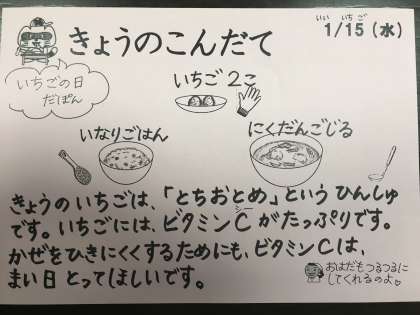 いい いちご
1/15（水）
きょうのこんだて
いちごの日
だぽん
いちご2こ
いなりごはん
にくだんごじる
きょうのいちごは、「とちおとめ」というひんしゅ
です。いちごには、ビタミンCがたっぷりです。
シー
かぜをひきにくくするためにも、ビタミンCは、
まい日とってほしいです。
おはだもつるつるに
してくれるのよ。